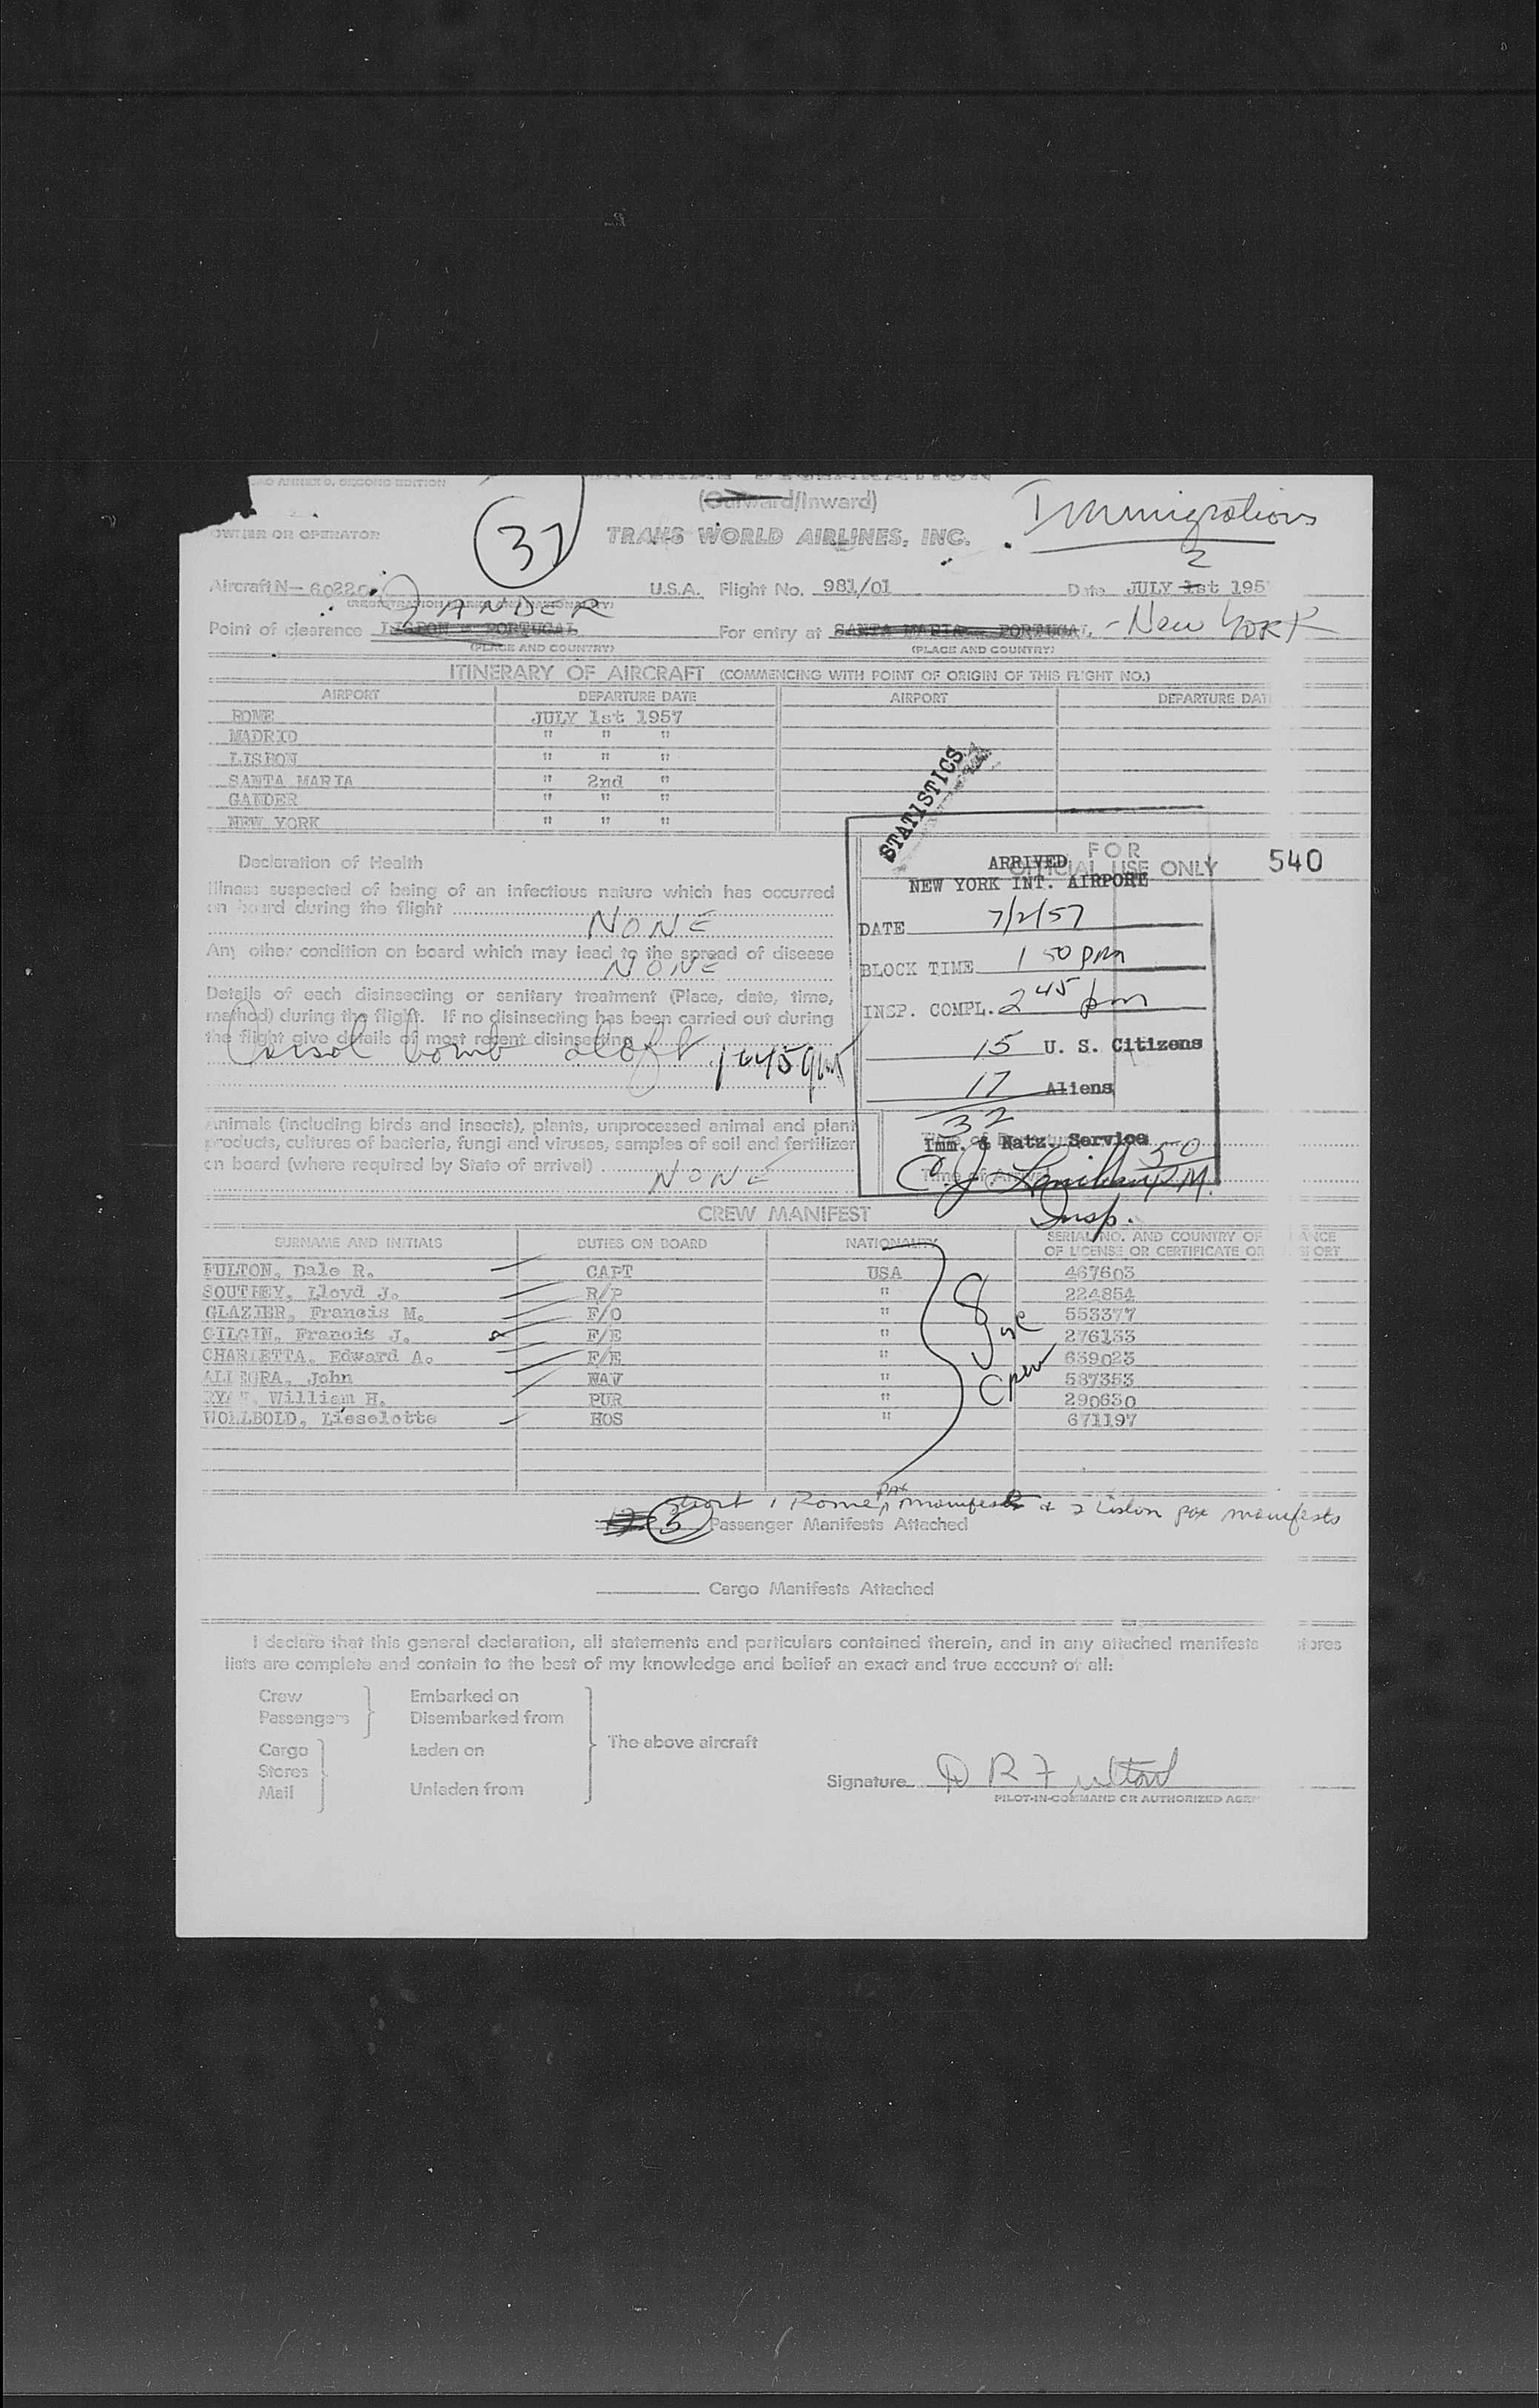 ANNEX 9, SECOND EDITION
(Outward/Inward)
Immigrations
OWNER OR OPERATOR
32
TRANS WORLD AIRLINES, INC.
2
Aircraft N- 6022 U.S.A. Flight No. 981/01 Date JULY 1st 195
(REGISTRATION MARKS AND NATIONALITY)
GANDER
Point of clearance LISBON - PORTUGAL For entry at SANTA MARIA - PORTUGAL - New York
(PLACE AND COUNTRY) (PLACE AND COUNTRY)
ITINERARY OF AIRCRAFT (COMMENCING WITH POINT OF ORIGIN OF THIS FLIGHT NO.)
AIRPORT DEPARTURE DATE AIRPORT DEPARTURE DAT
ROME JULY 1st 1957
MADRID " " "
LISBON " " "
SANTA MARIA " 2nd "
GANDER " " "
NEW YORK " " "
STATISTICS
Declaration of Health
Illness suspected of being of an infectious nature which has occurred
on board during the flight
NONE
Any other condition on board which may lead to the spread of disease
NONE
Details of each disinsecting or sanitary treatment (Place, date, time,
method) during the flight. If no disinsecting has been carried out during
the flight give details of most recent disinsecting
bomb aloft 1645 gmt
Animals (including birds and insects), plants, unprocessed animal and plant
products, cultures of bacteria, fungi and viruses, samples of soil and fertilizer
on board (where required by State of arrival)
NONE
FOR
OFFICIAL USE ONLY 540
ARRIVED
NEW YORK INT. AIRPORT
DATE 7/2/57
BLOCK TIME 1 50 pm
INSP. COMPL. 2 45 pm
15 U. S. Citizens
17 Aliens
32
Imm. & Natz. Service
Time of Arrival
C. J.
Insp.
P.M.
CREW MANIFEST
SURNAME AND INITIALS DUTIES ON BOARD NATIONALITY SERIAL NO. AND COUNTRY OF ANCE
OF LICENSE OR CERTIFICATE OR ORT
FULTON, Dale R. CAPT USA 467603
SOUTHEY, Lloyd J. R/P " 224854
GLAZIER, Francis M. F/O " 553377
GILGIN, Francis J. F/E " 276133
CHARLETTA, Edward A. F/E " 639023
ALLEGRA, John NAV " 587353
RYAN, William H. PUR " 290630
WOLLBOLD, Lieselotte HOS " 671197
8 usc
Crew
short 1 Rome pax manifest & 2 Lisbon pax manifests
5 Passenger Manifests Attached
Cargo Manifests Attached
I declare that this general declaration, all statements and particulars contained therein, and in any attached manifests stores
lists are complete and contain to the best of my knowledge and belief an exact and true account of all:
Crew Embarked on
Passengers Disembarked from
The above aircraft
Cargo Laden on
Stores
Mail Unladen from
Signature D R Fulton
PILOT-IN-COMMAND OR AUTHORIZED AGEN